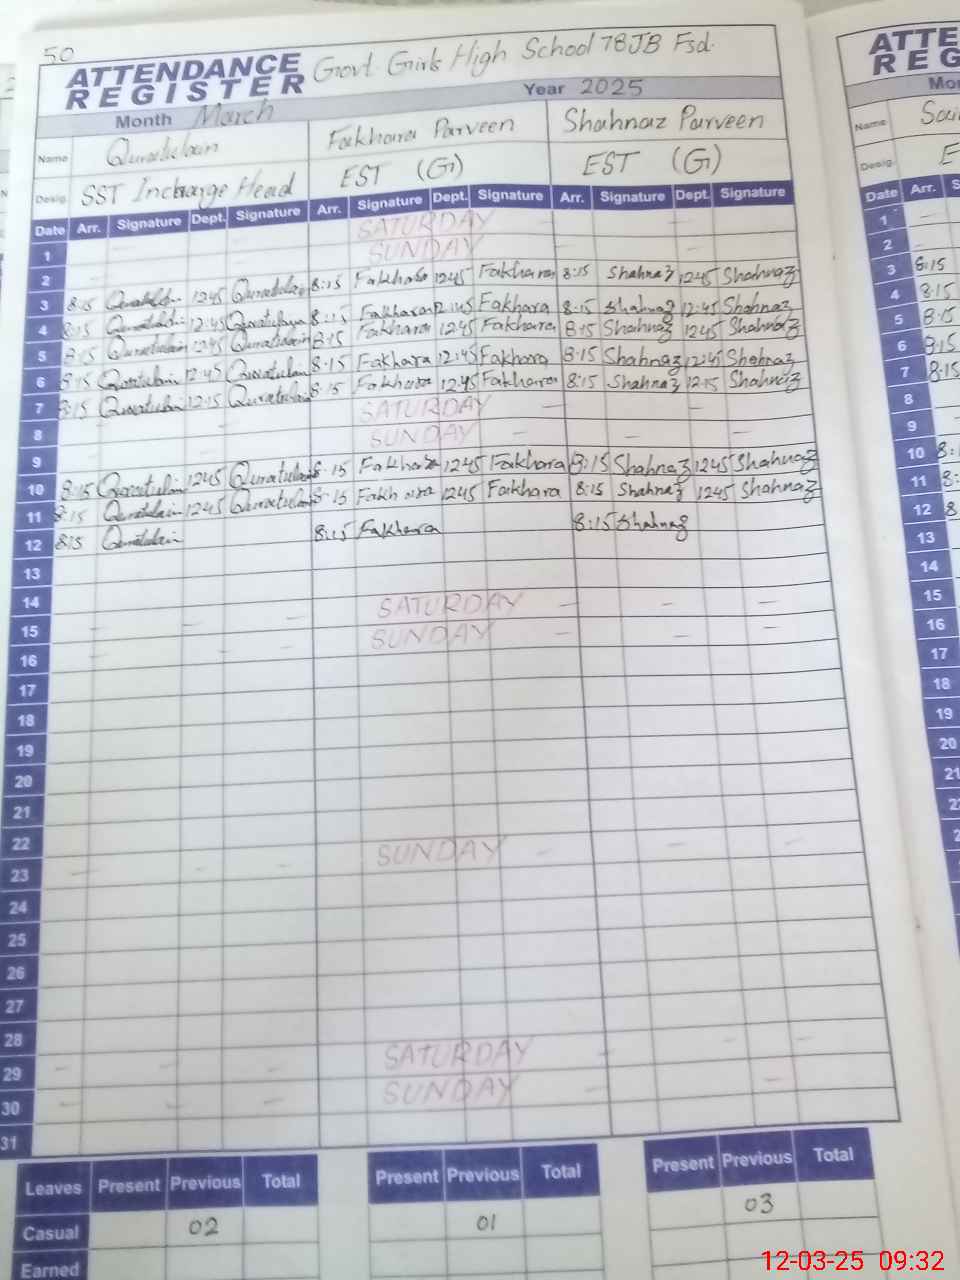 50
ATTENDANCE REGISTER Govt. Girls High School 78JB Fsd.
Month March Year 2025
Name Quratulain Fakhara Parveen Shahnaz Parveen
Desig. SST Incharge Head EST (G) EST (G)
Date Arr. Signature Dept. Signature Arr. Signature Dept. Signature Arr. Signature Dept. Signature
1 SATURDAY
2 SUNDAY
3 8:15 Quratulain 1245 Quratulain 8:15 Fakhara 1245 Fakhara 8:15 Shahnaz 1245 Shahnaz
4 8:15 Quratulain 12:45 Quratulain 8:15 Fakhara 12:45 Fakhara 8:15 Shahnaz 12:45 Shahnaz
5 8:15 Quratulain 1245 Quratulain 8:15 Fakhara 1245 Fakhara 8:15 Shahnaz 1245 Shahnaz
6 8:15 Quratulain 12:45 Quratulain 8:15 Fakhara 12:45 Fakhara 8:15 Shahnaz 12:45 Shahnaz
7 8:15 Quratulain 12:15 Quratulain 8:15 Fakhara 12:45 Fakhara 8:15 Shahnaz 12:15 Shahnaz
8 SATURDAY
9 SUNDAY
10 8:15 Quratulain 1245 Quratulain 8:15 Fakhara 1245 Fakhara 8:15 Shahnaz 1245 Shahnaz
11 8:15 Quratulain 1245 Quratulain 8:15 Fakhara 1245 Fakhara 8:15 Shahnaz 1245 Shahnaz
12 8:15 Quratulain 8:15 Fakhara 8:15 Shahnaz
13
14
15 SATURDAY
16 SUNDAY
17
18
19
20
21
22
23 SUNDAY
24
25
26
27
28
29 SATURDAY
30 SUNDAY
31
Leaves Present Previous Total Present Previous Total Present Previous Total
Casual 02 01 03
Earned
Name
Desig.
Date Arr.
1
2
3 8:15
4 8:15
5 8:15
6 8:15
7 8:15
8
9
10
11
12
13
14
15
16
17
18
19
20
21
12-03-25 09:32